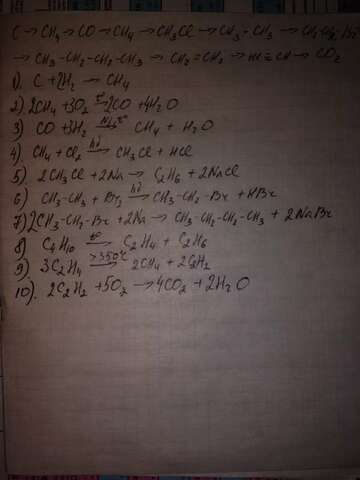 C → CH4 → CO → CH4 → CH3Cl → CH3-CH3 → CH3-CH2-Br →
→ CH3-CH2-CH2-CH3 → CH2=CH2 → HC≡CH → CO2
1). C + 2H2 → CH4
2) 2CH4 + 3O2 →t° 2CO + 4H2O
3) CO + 3H2 →Ni,t° CH4 + H2O
4) CH4 + Cl2 →hν CH3Cl + HCl
5) 2CH3Cl + 2Na → C2H6 + 2NaCl
6) CH3-CH3 + Br2 →hν CH3-CH2-Br + HBr
7) 2CH3-CH2-Br + 2Na → CH3-CH2-CH2-CH3 + 2NaBr
8) C4H10 →t° C2H4 + C2H6
9) 3C2H4 →>350°C 2CH4 + 2C2H2
10). 2C2H2 + 5O2 → 4CO2 + 2H2O